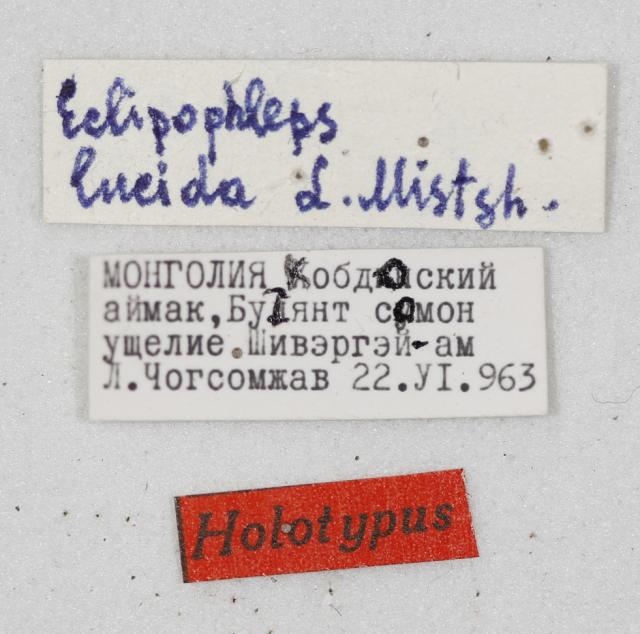 Eclipophleps
lucida L. Mistsh.
МОНГОЛИЯ Кобдоский
аймак, Буянт сомон
ущелие Шивэргэй-ам
Л.Чогсомжав 22.УI.963
Holotypus